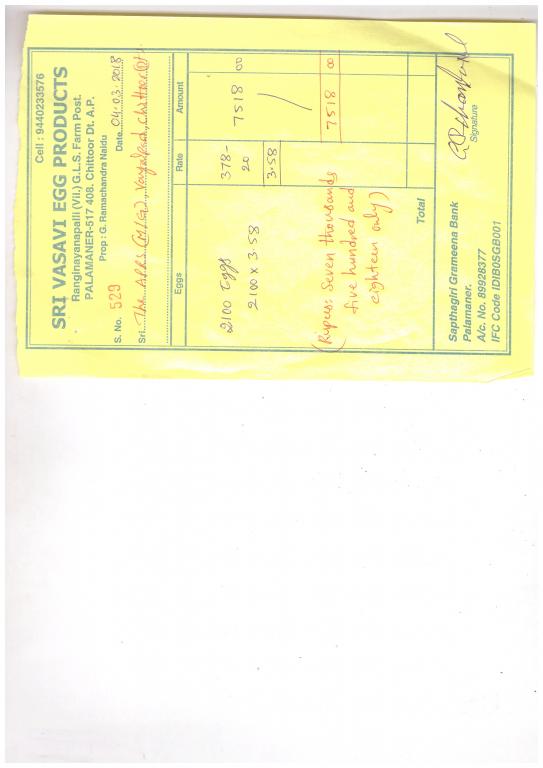 Cell : 9440233576
SRI VASAVI EGG PRODUCTS
Ranginayanapalli (Vil.) G.L.S. Farm Post.
PALAMANER-517 408. Chittoor Dt. A.P.
Prop : G. Ramachandra Naidu
S. No. 529 Date 04.03.2018
Sri The APRS (M/G), Vayalpad, Chittoor(Dt).
Eggs Rate Amount
2100 Eggs 378- 7518 00
2100 x 3.58 20
3.58
(Rupees: Seven thousands 7518 00
five hundred and
eighteen only)
Total
Sapthagiri Grameena Bank
Palamaner.
A/c. No. 89928377
IFC Code IDIB0SGB001
Signature